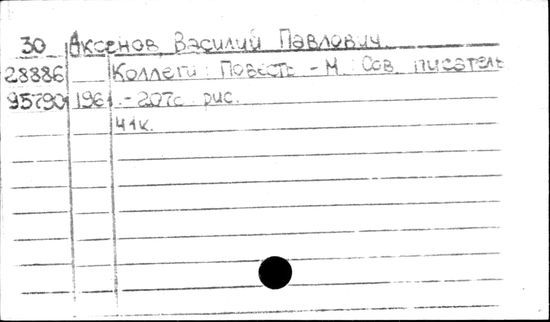 30 Аксенов, Василий Павлович.
28886 Коллеги: Повесть. - М.: Сов. писатель
95790 1961. - 207с. рис.
44к.